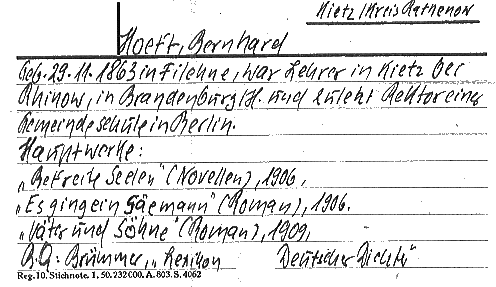 Kietz /Kreis Rathenow
Hoeft, Bernhard
Geb. 29.11.1863 in Filehne, war Lehrer in Kietz bei
Rhinow, in Brandenburg/H. und zuletzt Rektor einer
Gemeindeschule in Berlin.
Hauptwerke:
„Befreite Seelen" (Novellen), 1906,
„Es ging ein Säemann" (Roman), 1906.
„Väter und Söhne" (Roman), 1909,
Brümmer, „Lexikon Deutscher Dicht"
Reg. 10. Stichnote. 1, 50. 232000. A. 803. S. 4062